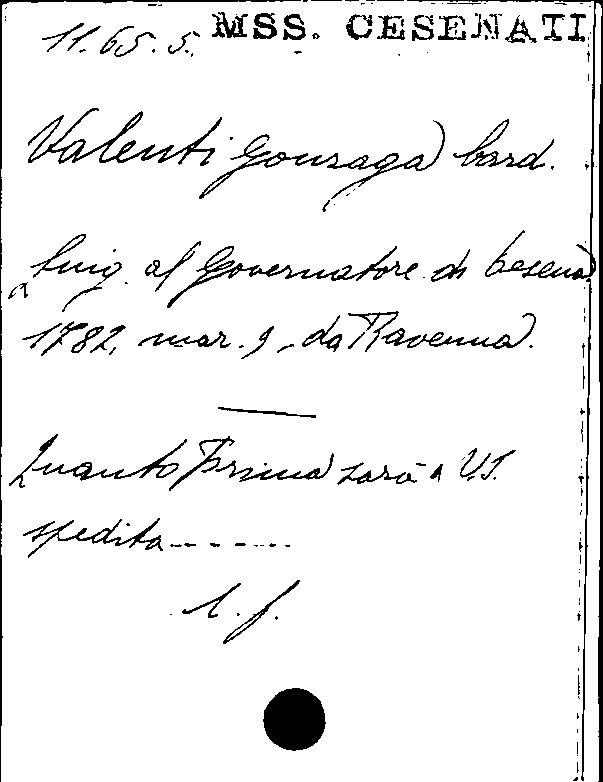 11.65.5. MSS. CESENATI
Valenti Gonzaga Card.
Luig. al Governatore di Cesena
1782, mar. 9, da Ravenna.
Quanto Prima sarà a V.S.
spedita------
1. f.